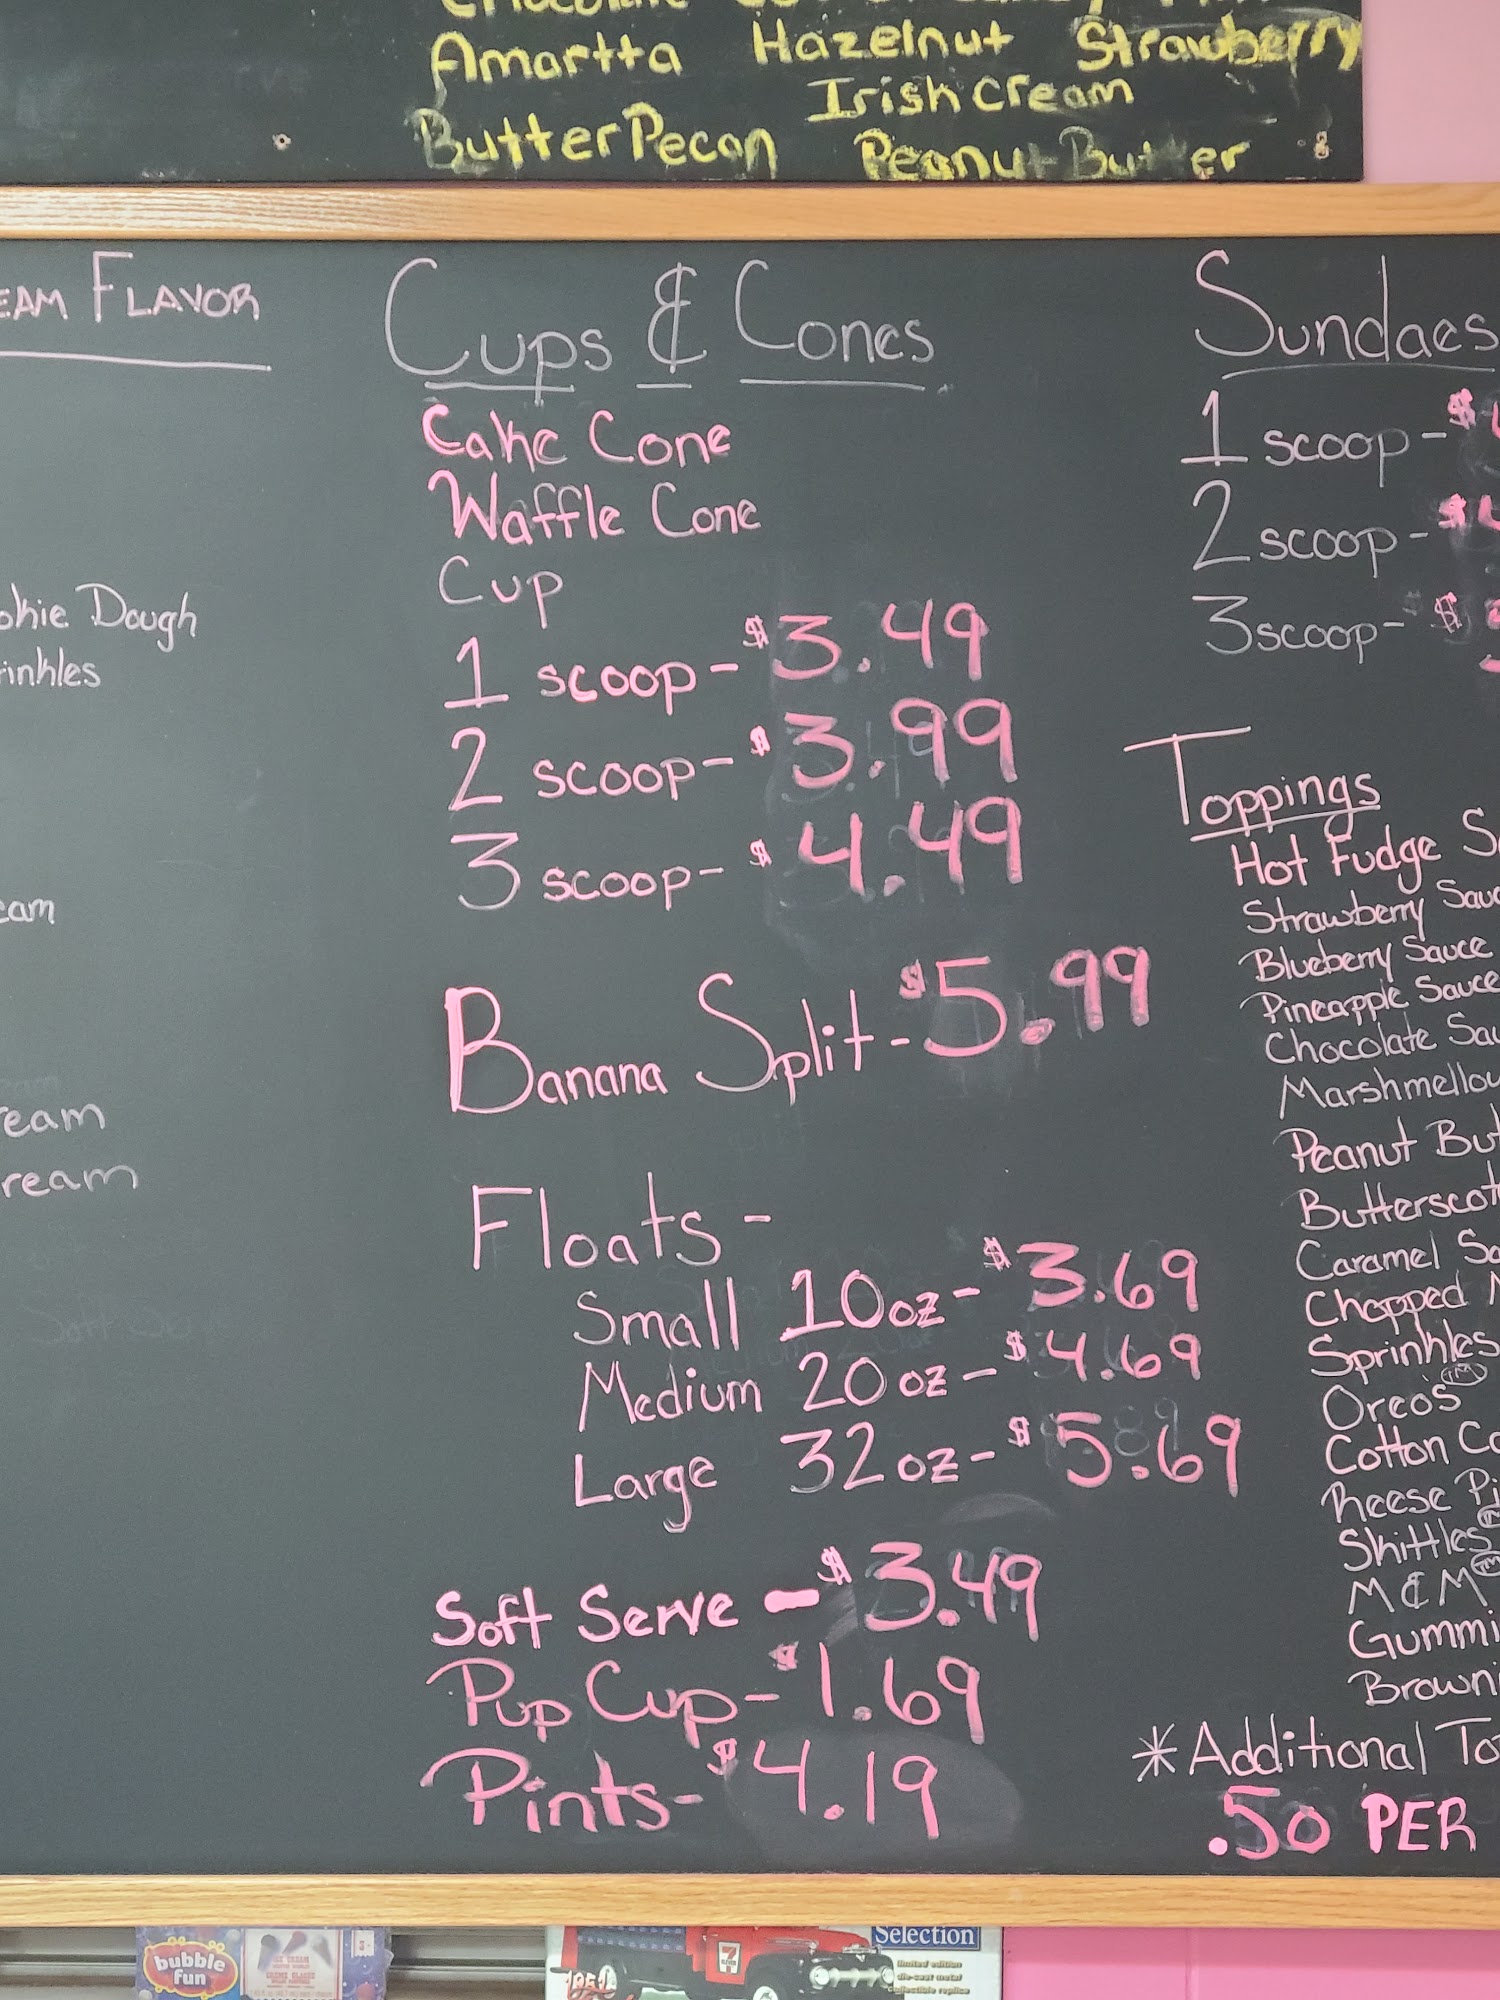 Amartta Hazelnut Strawberry
Irish Cream
Butter Pecan Peanut Butter
EAM FLAVOR
okie Dough
rinkles
eam
ream
ream
Cups & Cones
Cake Cone
Waffle Cone
Cup
1 scoop - $3.49
2 scoop - $3.99
3 scoop - $4.49
Banana Split - $5.99
Floats -
Small 10oz - $3.69
Medium 20oz - $4.69
Large 32oz - $5.69
Soft Serve - $3.49
Pup Cup - $1.69
Pints - $4.19
Sundaes
1 scoop - $
2 scoop - $
3 scoop - $
Toppings
Hot Fudge S
Strawberry Sauc
Blueberry Sauce
Pineapple Sauce
Chocolate Sau
Marshmellow
Peanut But
Butterscot
Caramel Sa
Chopped N
Sprinkles
Oreo's TM
Cotton Ca
Reese Pi
Skittles TM
M&M TM
Gummi
Browni
*Additional To
.50 PER
bubble
fun
1951
7
ELEVEN
Selection
limited edition
die-cast metal
collectible replica